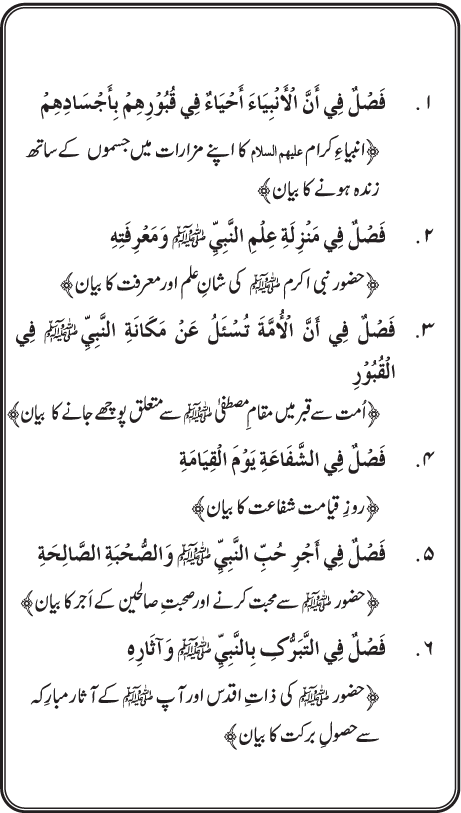 ۱. فَصْلٌ فِي أَنَّ الْأَنْبِيَاءَ أَحْيَاءٌ فِي قُبُوْرِهِمْ بِأَجْسَادِهِمْ
﴿انبیاءِ کرام علیہم السلام کا اپنے مزارات میں جسموں کے ساتھ
زندہ ہونے کا بیان﴾
۲. فَصْلٌ فِي مَنْزِلَةِ عِلْمِ النَّبِيِّ ﷺ وَمَعْرِفَتِهِ
﴿حضور نبی اکرم ﷺ کی شانِ علم اور معرفت کا بیان﴾
۳. فَصْلٌ فِي أَنَّ الْأُمَّةَ تُسْئَلُ عَنْ مَكَانَةِ النَّبِيِّ ﷺ فِي
الْقُبُوْرِ
﴿اُمت سے قبر میں مقامِ مصطفیٰ ﷺ سے متعلق پوچھے جانے کا بیان﴾
۴. فَصْلٌ فِي الشَّفَاعَةِ يَوْمَ الْقِيَامَةِ
﴿روزِ قیامت شفاعت کا بیان﴾
۵. فَصْلٌ فِي أَجْرِ حُبِّ النَّبِيِّ ﷺ وَالصُّحْبَةِ الصَّالِحَةِ
﴿حضور ﷺ سے محبت کرنے اور صحبتِ صالحین کے اَجر کا بیان﴾
۶. فَصْلٌ فِي التَّبَرُّكِ بِالنَّبِيِّ ﷺ وَآثَارِهِ
﴿حضور ﷺ کی ذاتِ اقدس اور آپ ﷺ کے آثار مبارکہ
سے حصولِ برکت کا بیان﴾